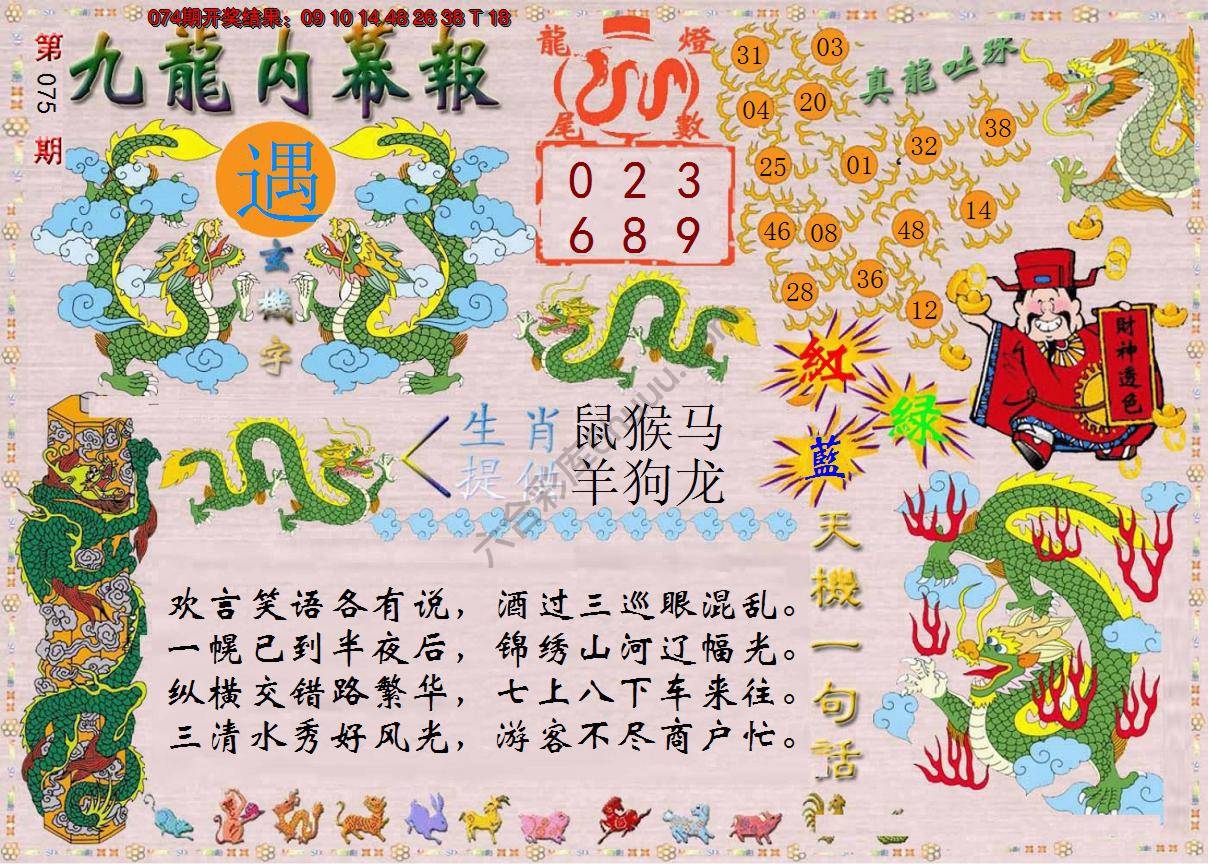 074期开奖结果：09 10 14 48 26 38 T 18
第075期
九龍内幕報
遇
玄機字
龍燈
尾數
0 2 3
6 8 9
真龍吐珠
31 03
04 20
25 01 32 38
46 08 48 14
28 36 12
財神透色
紅
綠
藍
生肖
提供
鼠猴马
羊狗龙
天機一句話
欢言笑语各有说，酒过三巡眼混乱。
一幌已到半夜后，锦绣山河辽幅光。
纵横交错路繁华，七上八下车来往。
三清水秀好风光，游客不尽商户忙。